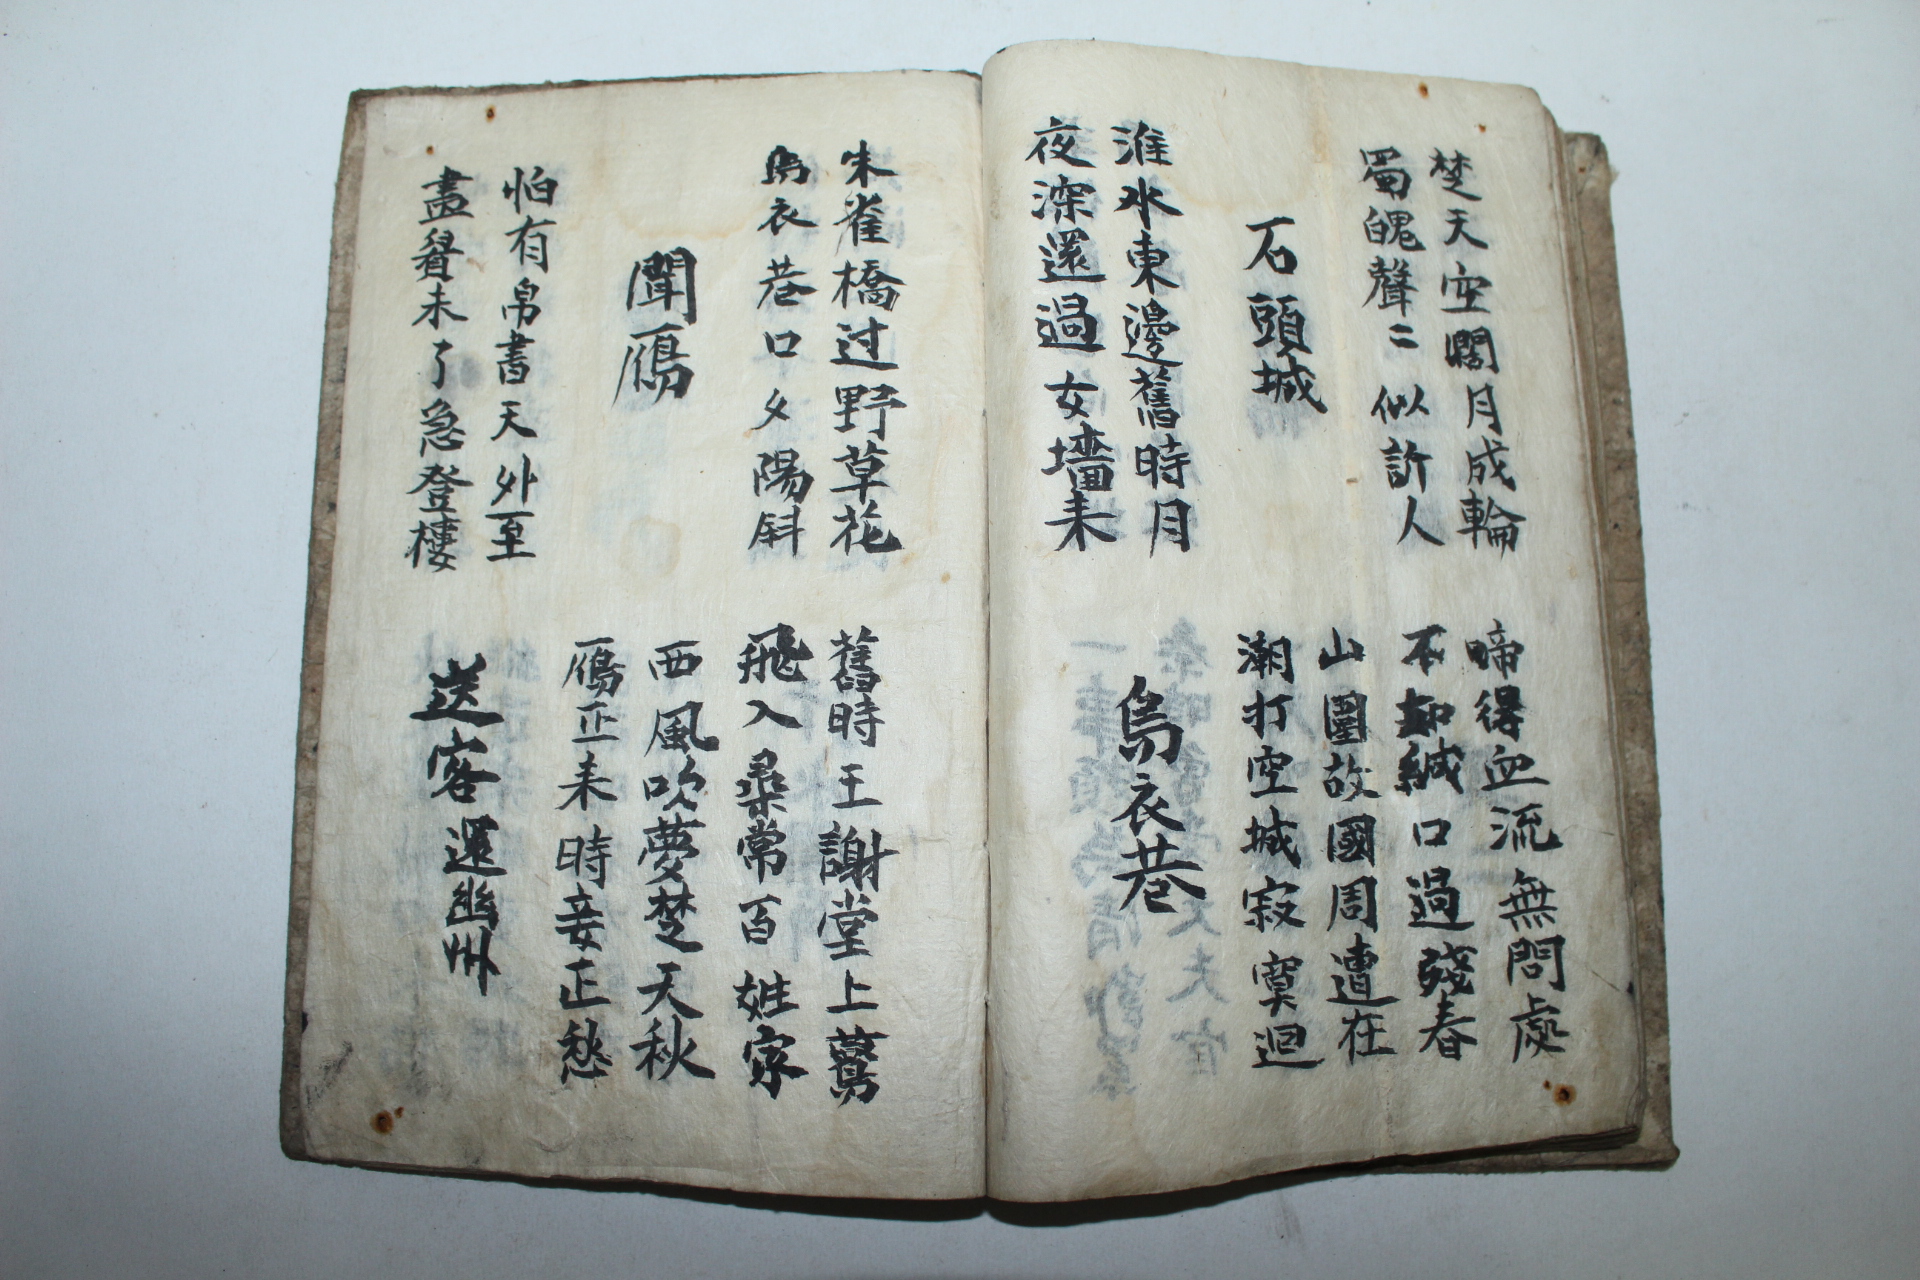 楚天空闊月成輪
蜀魄聲二似訴人
啼得血流無問處
不如緘口過殘春
石頭城
山圍故國周遭在
潮打空城寂寞迴
淮水東邊舊時月
夜深還過女墻来
烏衣巷
朱雀橋过野草花
烏衣巷口夕陽斜
舊時王謝堂上鷰
飛入尋常百姓家
聞鴈
西風吹夢楚天秋
鴈正来時妾正愁
怕有帛書天外至
盡看未了急登樓
送客還幽州